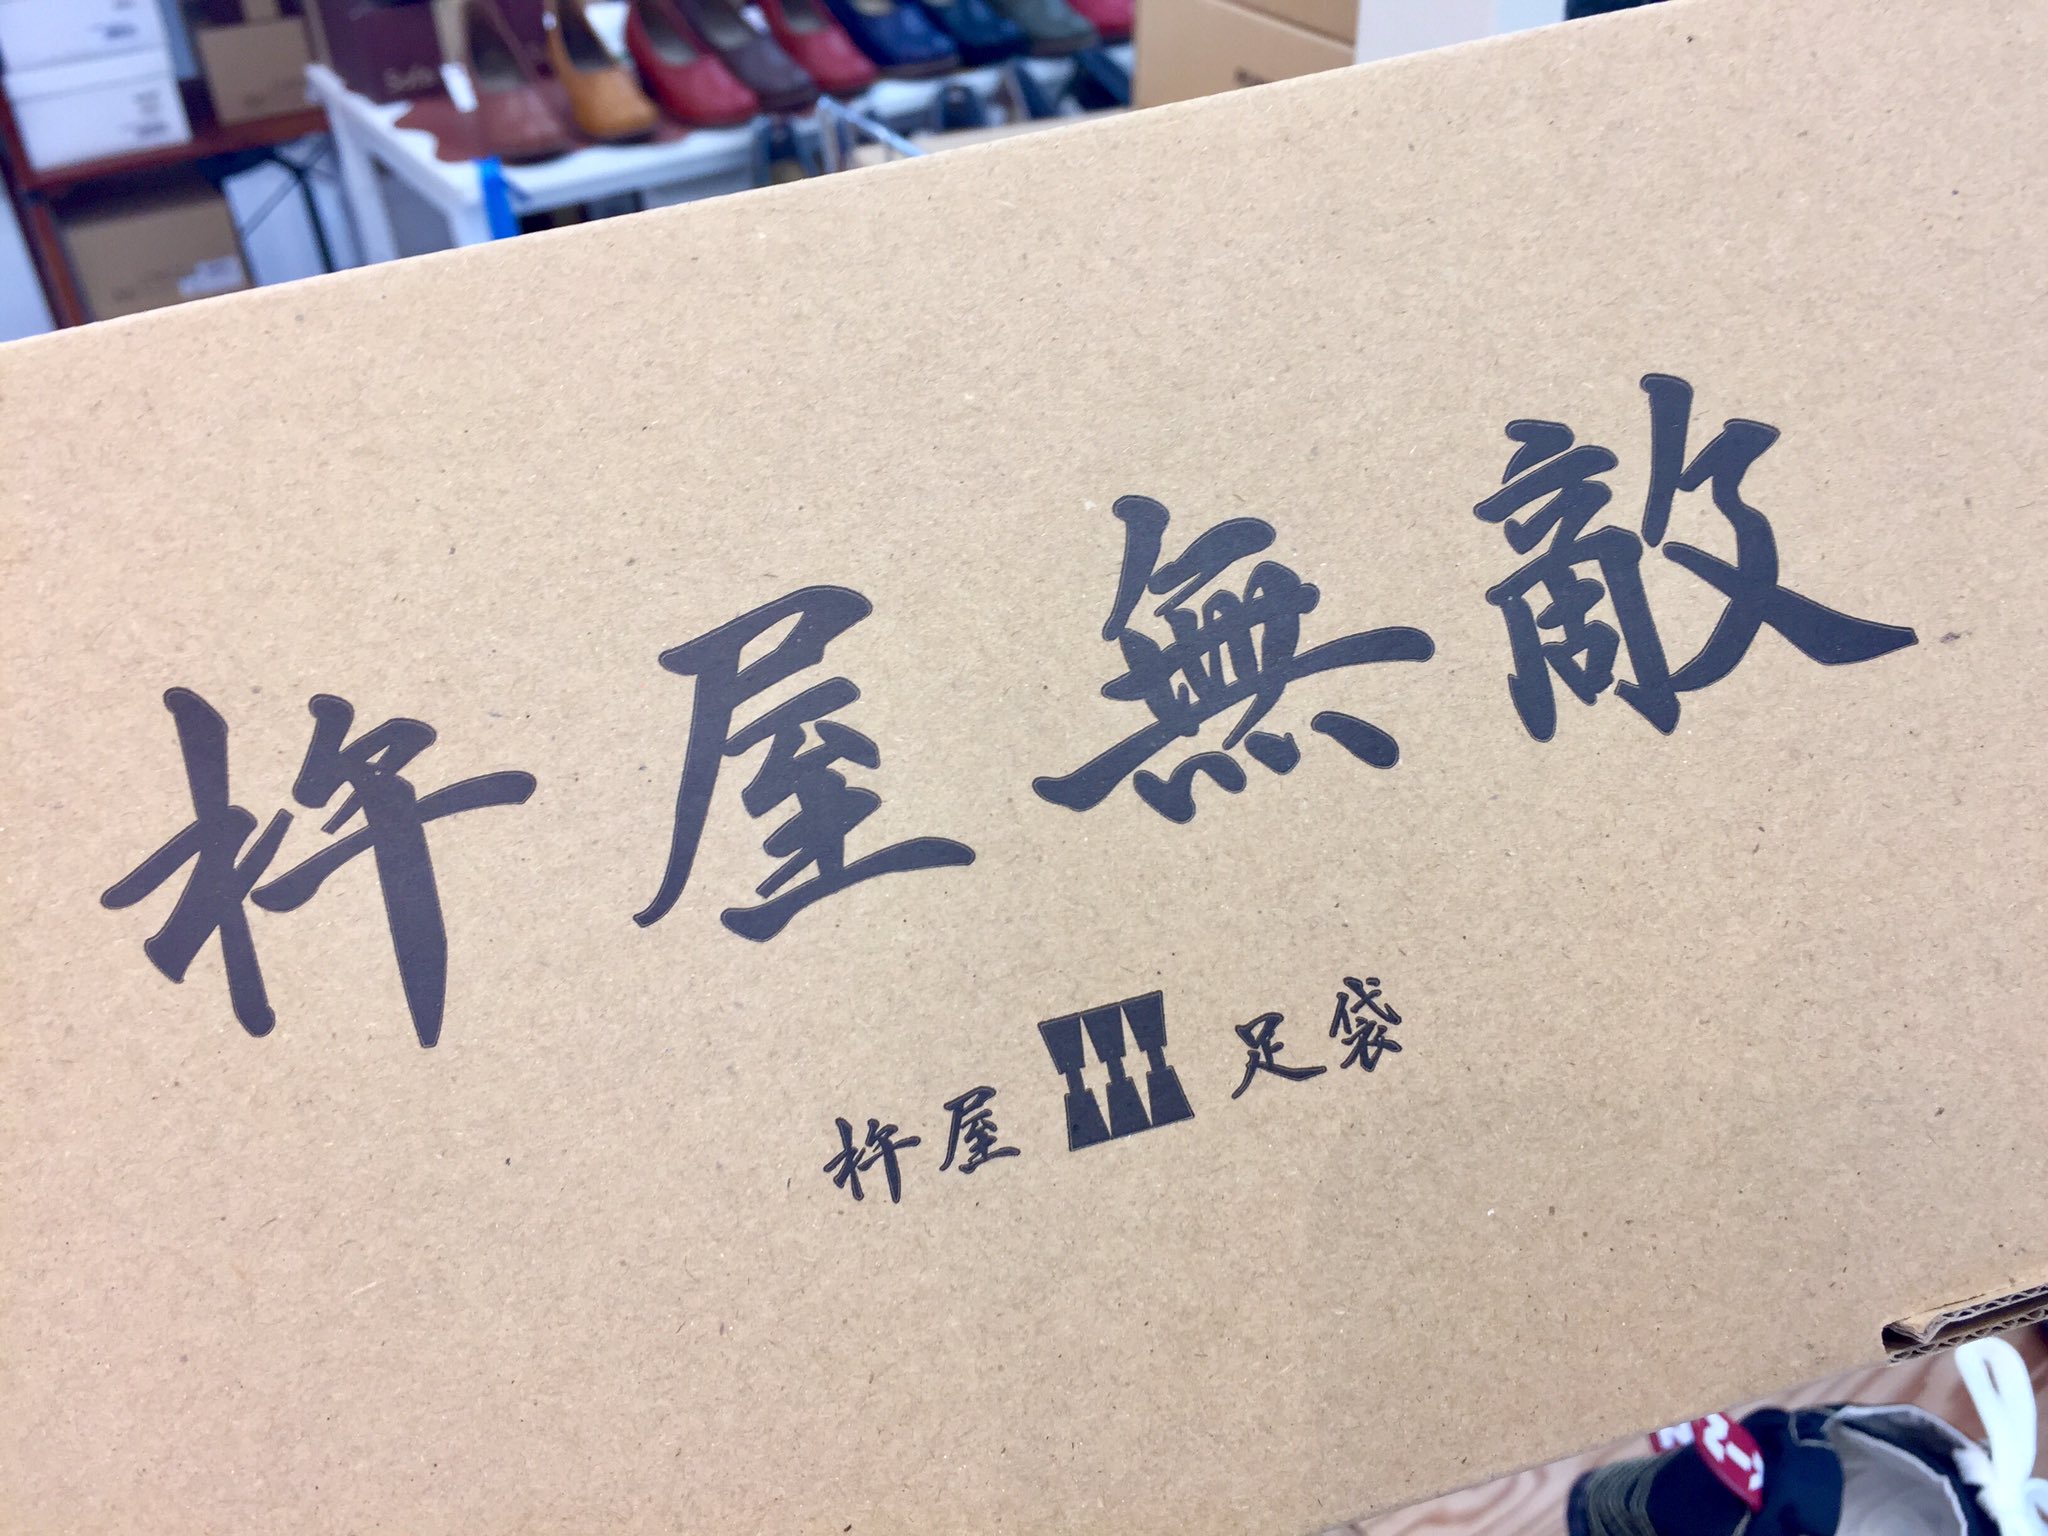 杵屋無敵
杵屋足袋